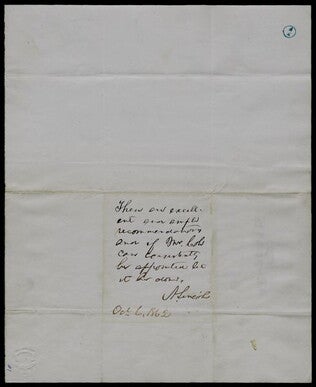 These are excell-
ent and ample
recommendations
and if Mr.
can consistently
be appointed let
it be done.
A. Lincoln
Oct. 6, 1862